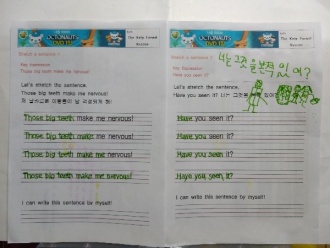 OCTONAUTS
Key Expression
Those big teeth make me nervous!
Let's stretch the sentence.
Those big teeth make me nervous!
Those big teeth make me nervous!
Those big teeth make me nervous!
Those big teeth make me nervous!
Those big teeth make me nervous!
I can write this sentence by myself!
OCTONAUTS
Key Expression
Have you seen it?
너는 그것을 본적 있어?
Let's stretch the sentence.
Have you seen it?
Have you seen it?
Have you seen it?
Have you seen it?
Have you seen it?
I can write this sentence by myself!